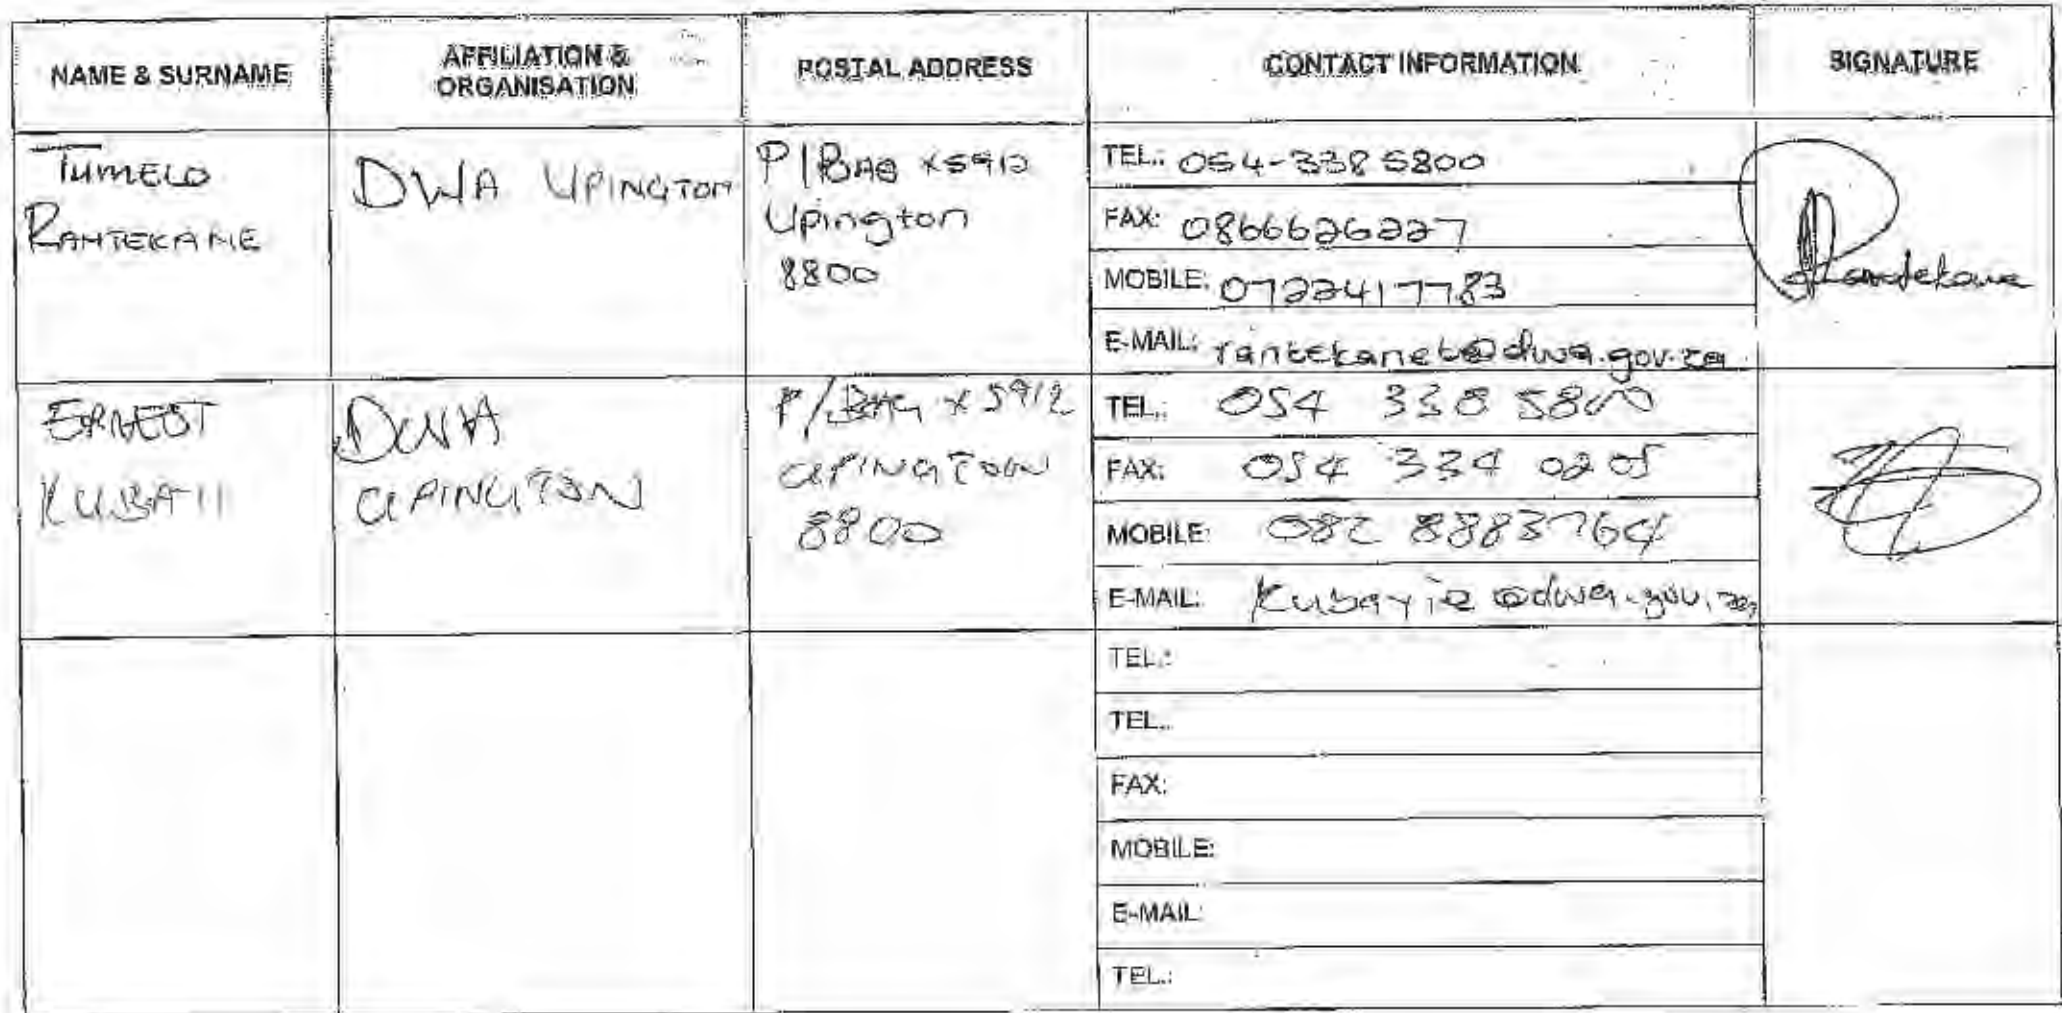 NAME & SURNAME
AFFILIATION &
ORGANISATION
POSTAL ADDRESS
CONTACT INFORMATION
SIGNATURE
TUMELO
RANTEKANE
DWA UPINGTON
P/BAG X5912
Upington
8800
TEL.: 054-338 5800
FAX: 0866626227
MOBILE: 0722417783
E-MAIL: rantekanet@dwa.gov.za
ERNEST
KUBAII
DWA
UPINGTON
P/BAG X5912
UPINGTON
8800
TEL.: 054 338 5800
FAX: 054 334 0205
MOBILE: 082 8883764
E-MAIL: Kubayie@dwa.gov.za
TEL.:
TEL.:
FAX:
MOBILE:
E-MAIL:
TEL.: